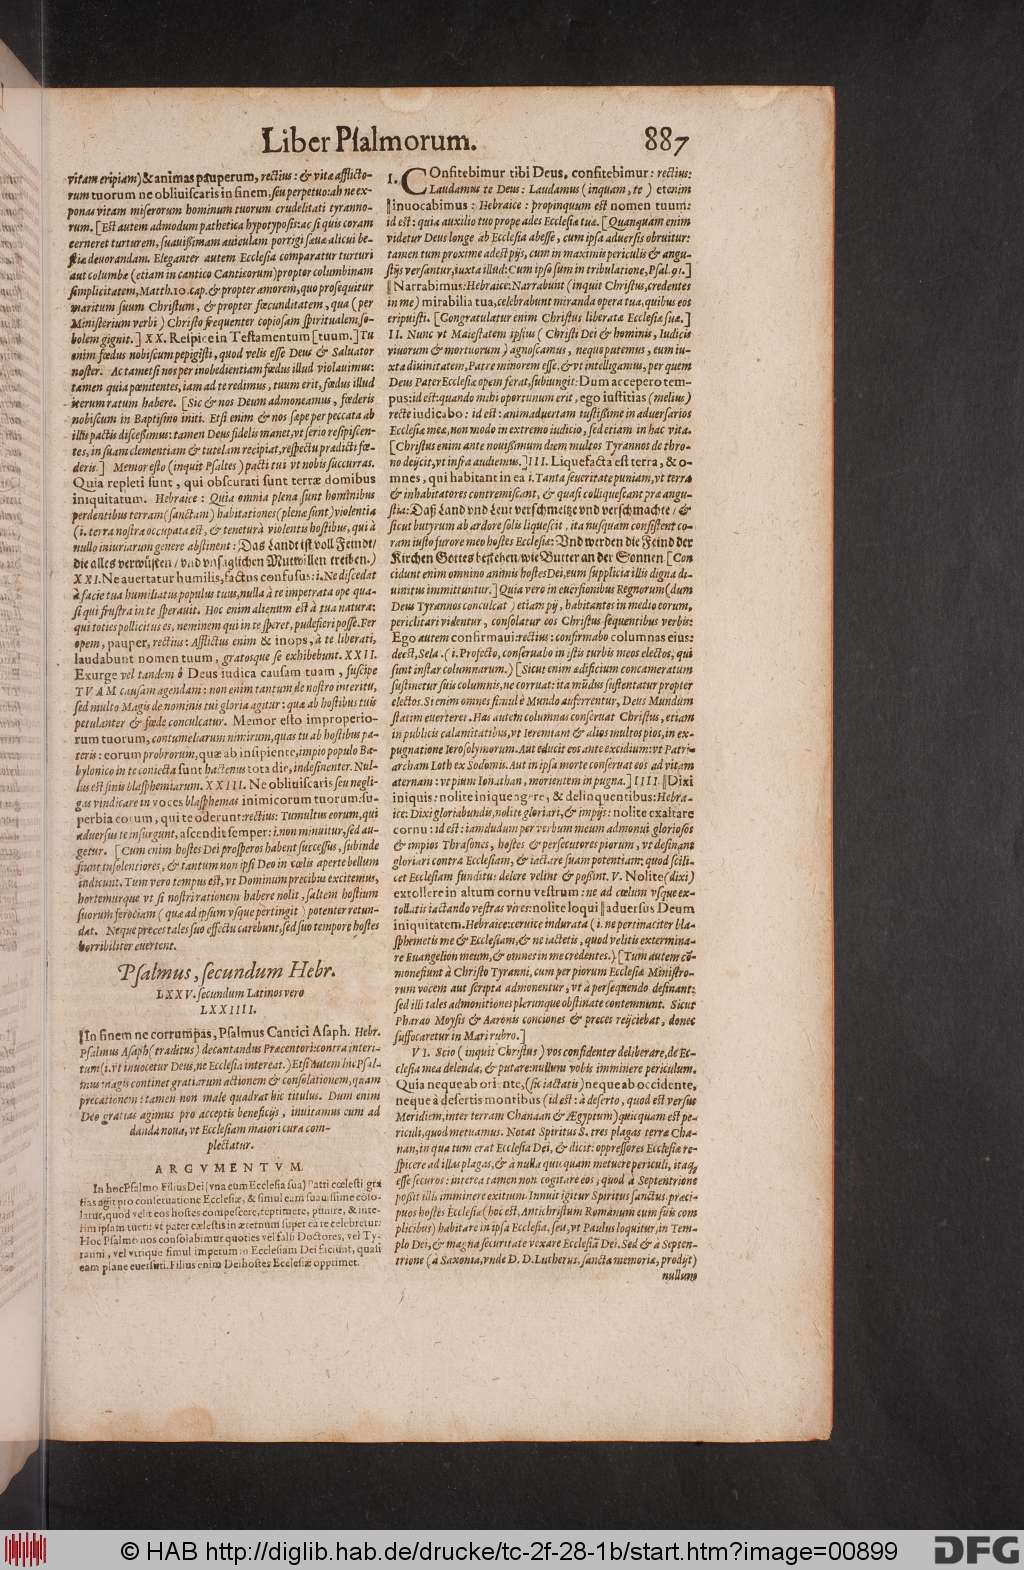 Liber Psalmorum. 887
vitam eripiam) & animas pauperum, rectius: & vitæ afflicto-
rum tuorum ne obliuiscaris in finem, seu perpetuo: ab ne ex-
ponas vitam miserorum hominum tuorum crudelitati tyranno-
rum. [Est autem admodum pathetica hypotyposis: ac si quis coram
cerneret turturem, suauißimam auiculam porrigi sæuæ alicui be-
stiæ deuorandam. Eleganter autem Ecclesia comparatur turturi
aut columbæ (etiam in cantico Canticorum) propter columbinam
simplicitatem, Matth. 10. cap. & propter amorem, quo prosequitur
maritum suum Christum, & propter fœcunditatem, qua (per
Ministerium verbi) Christo frequenter copiosam spiritualem, so-
bolem gignit.] XX. Respice in Testamentum [tuum.] Tu
enim fœdus nobiscum pepigisti, quod velis esse Deus & Saluator
noster. Ac tametsi nos per inobedientiam fœdus illud violauimus:
tamen quia pœnitentes, iam ad te redimus, tuum erit, fœdus illud
iterum ratum habere. [Sic & nos Deum admoneamus, fœderis
nobiscum in Baptismo initi. Etsi enim & nos sæpe per peccata ab
illis pactis disceßimus: tamen Deus fidelis manet, vt serio resipiscen-
tes, in suam clementiam & tutelam recipiat, respectu prædicti fœ-
deris.] Memor esto (inquit Psaltes) pacti tui vt nobis succurras.
Quia repleti sunt, qui obscurati sunt terræ domibus
iniquitatum. Hebraice: Quia omnia plena sunt hominibus
perdentibus terram (sanctam) habitationes (plenæ sunt) violentia
(i. terra nostra occupata est, & tenetur à violentis hostibus, qui à
nullo iniuriarum genere abstinent: Das Landt ist voll Feindt/
die alles verwüsten/ vnd vnsäglichen Mutwillen treiben.)
XXI. Ne auertatur humilis, factus confusus: i. Ne discedat
à facie tua humiliatus populus tuus, nulla à te impetrata ope qua-
si qui frustra in te sperauit. Hoc enim alienum est à tua natura:
qui toties pollicitus es, neminem qui in te speret, pudefieri posse. Per
opem, pauper, rectius: Afflictus enim & inops, à te liberati,
laudabunt nomen tuum, gratosque se exhibebunt. XXII.
Exurge vel tandem ô Deus iudica causam tuam, suscipe
TVAM causam agendam: non enim tantum de nostro interitu,
sed multo Magis de nominis tui gloria agitur: quæ ab hostibus tuis
petulanter & fœde conculcatur. Memor esto improperio-
rum tuorum, contumeliarum nimirum, quas tu ab hostibus pa-
teris: eorum probrorum, quæ ab insipiente, impio populo Ba-
bylonico in te coniecta sunt hactenus tota die, indesinenter. Nul-
lus est finis blasphemiarum. XXIII. Ne obliuiscaris seu negli-
gas vindicare in voces blasphemas inimicorum tuorum: su-
perbia eorum, qui te oderunt: rectius: Tumultus eorum, qui
aduersus te insurgunt, ascendit semper: i. non minuitur, sed au-
getur. [Cum enim hostes Dei prosperos habent successus, subinde
fiunt insolentiores, & tantum non ipsi Deo in cœlis aperte bellum
indicunt. Tum vero tempus est, vt Dominum precibus excitemus,
hortemurque vt si nostri rationem habere nolit, saltem hostium
suorum ferociam (quæ ad ipsum vsque pertingit) potenter retun-
dat. Neque preces tales suo effectu carebunt, sed suo tempore hostes
horribiliter euertent.
Psalmus, secundum Hebr.
LXXV. secundum Latinos vero
LXXIIII.
In finem ne corrumpas, Psalmus Cantici Asaph. Hebr.
Psalmus Asaph (traditus) decantandus Præcentori: contra interi-
tum (i. vt inuocetur Deus, ne Ecclesia intereat.) Etsi autem hic Psal-
mus magis continet gratiarum actionem & consolationem, quam
precationem: tamen non male quadrat hic titulus. Dum enim
Deo gratias agimus pro acceptis beneficijs, inuitamus eum ad
danda noua, vt Ecclesiam maiori cura com-
plectatur.
ARGVMENTVM.
In hoc Psalmo Filius Dei (vna cum Ecclesia sua) Patri cœlesti gra
tias agit pro conseruatione Ecclesiæ, & simul eam suauissime conso-
latur, quod velit eos hostes compescere, reprimere, punire, & inte-
rim ipsam tueri: vt pater cælestis in æternum super ea re celebretur.
Hoc Psalmo nos consolabimur quoties vel falsi Doctores, vel Ty-
ranni, vel vtrique simul impetum in Ecclesiam Dei faciunt, quasi
eam plane euersuri. Filius enim Dei hostes Ecclesiæ opprimet.
I. COnfitebimur tibi Deus, confitebimur: rectius:
Laudamus te Deus: Laudamus (inquam, te) et enim
inuocabimus: Hebraice: propinquum est nomen tuum:
id est: quia auxilio tuo prope ades Ecclesiæ tuæ. [Quanquam enim
videtur Deus longe ab Ecclesia abesse, cum ipsa aduersis obruitur:
tamen tum proxime adest pijs, cum in maximis periculis & angu-
stijs versantur, iuxta illud: Cum ipso sum in tribulatione, Psal. 91.]
Narrabimus: Hebraice: Narrabunt (inquit Christus, credentes
in me) mirabilia tua, celebrabunt miranda opera tua, quibus eos
eripuisti. [Congratulatur enim Christus liberatæ Ecclesiæ suæ.]
II. Nunc vt Maiestatem ipsius (Christi Dei & hominis, Iudicis
viuorum & mortuorum) agnoscamus, neque putemus, eum iu-
xta diuinitatem, Patre minorem esse, & vt intelligamus, per quem
Deus Pater Ecclesiæ opem ferat, subiungit: Dum accepero tem-
pus: id est: quando mihi oportunum erit, ego iustitias (melius)
recte iudicabo: id est: animaduertam iustißime in aduersarios
Ecclesiæ meæ, non modo in extremo iudicio, sed etiam in hac vita.
[Christus enim ante nouißimum diem multos Tyrannos de thro-
no deijcit, vt infra audiemus.] III. Liquefacta est terra, & o-
mnes, qui habitant in ea i. Tanta seueritate puniam, vt terra
& inhabitatores contremiscant, & quasi colliquescant præ angu-
stia: Daß Land vnd Leut verschmeltze vnd verschmachte/ &
sicut butyrum ab ardore solis liquescit, ita nusquam consistent co-
ram iusto furore meo hostes Ecclesiæ: Vnd werden die Feind der
Kirchen Gottes bestehen/ wie Butter an der Sonnen [Con
cidunt enim omnino animis hostes Dei, cum supplicia illis digna di-
uinitus immittuntur.] Quia vero in euersionibus Regnorum (dum
Deus Tyrannos conculcat) etiam pij, habitantes in medio eorum,
periclitari videntur, consolatur eos Christus sequentibus verbis:
Ego autem confirmaui: rectius: confirmabo columnas eius:
deest, Sela. (i. Profecto, conseruabo in istis turbis meos electos, qui
sunt instar columnarum.) [Sicut enim ædificium concameratum
sustinetur suis columnis, ne corruat: ita mūdus sustentatur propter
electos. Si enim omnes simul è Mundo auferrentur, Deus Mundum
statim euerteret. Has autem columnas conseruat Christus, etiam
in publicis calamitatibus, vt Ieremiam & alios multos pios, in ex-
pugnatione Ierosolymorum. Aut educit eos ante excidium: vt Patri-
archam Loth ex Sodomis. Aut in ipsa morte conseruat eos ad vitam
æternam: vt pium Ionathan, morientem in pugna.] IIII. Dixi
iniquis: nolite inique agere, & delinquentibus: Hebra-
ice: Dixi gloriabundis, nolite gloriari, & impijs: nolite exaltare
cornu: id est: iamdudum per verbum meum admonui gloriosos
& impios Thrasones, hostes & persecutores piorum, vt desinant
gloriari contra Ecclesiam, & iactare suam potentiam: quod scili-
cet Ecclesiam funditus delere velint & poßint. V. Nolite (dixi)
extollere in altum cornu vestrum: ne ad cœlum vsque ex-
tollatis iactando vestras vires: nolite loqui aduersus Deum
iniquitatem. Hebraice: ceruice indurata (i. ne pertinaciter bla-
sphemetis me & Ecclesiam, & ne iactetis, quod velitis extermina-
re Euangelion meum, & omnes in me credentes.) [Tum autem cō
monefiunt à Christo Tyranni, cum per piorum Ecclesiæ Ministro-
rum vocem aut scripta admonentur, vt à persequendo desinant:
sed illi tales admonitiones plerunque obstinate contemnunt. Sicut
Pharao Moysis & Aaronis conciones & preces reijciebat, donec
suffocaretur in Mari rubro.]
VI. Scio (inquit Christus) vos confidenter deliberare, de Ec-
clesia mea delenda, & putare: nullum vobis imminere periculum.
Quia neque ab oriente, (sic iactatis) neque ab occidente,
neque à desertis montibus (id est: à deserto, quod est versus
Meridiem, inter terram Chanaan & Ægyptum) quicquam est pe-
riculi, quod metuamus. Notat Spiritus S. tres plagas terræ Cha-
nan, in qua tum erat Ecclesia Dei, & dicit: oppressores Ecclesiæ re-
spicere ad illas plagas, & à nulla quicquam metuere periculi, itaq;
esse securos: interea tamen non cogitare eos, quod à Septentrione
poßit illis imminere exitium. Innuit igitur Spiritus sanctus, præci-
puos hostes Ecclesiæ (hoc est, Antichristum Romanum cum suis com
plicibus) habitare in ipsa Ecclesia, seu, vt Paulus loquitur, in Tem-
plo Dei, & magna securitate vexare Ecclesiā Dei. Sed & à Septen-
trione (à Saxonia, vnde D. D. Lutherus, sanctæ memoriæ, prodijt)
nullum
© HAB http://diglib.hab.de/drucke/tc-2f-28-1b/start.htm?image=00899
DFG